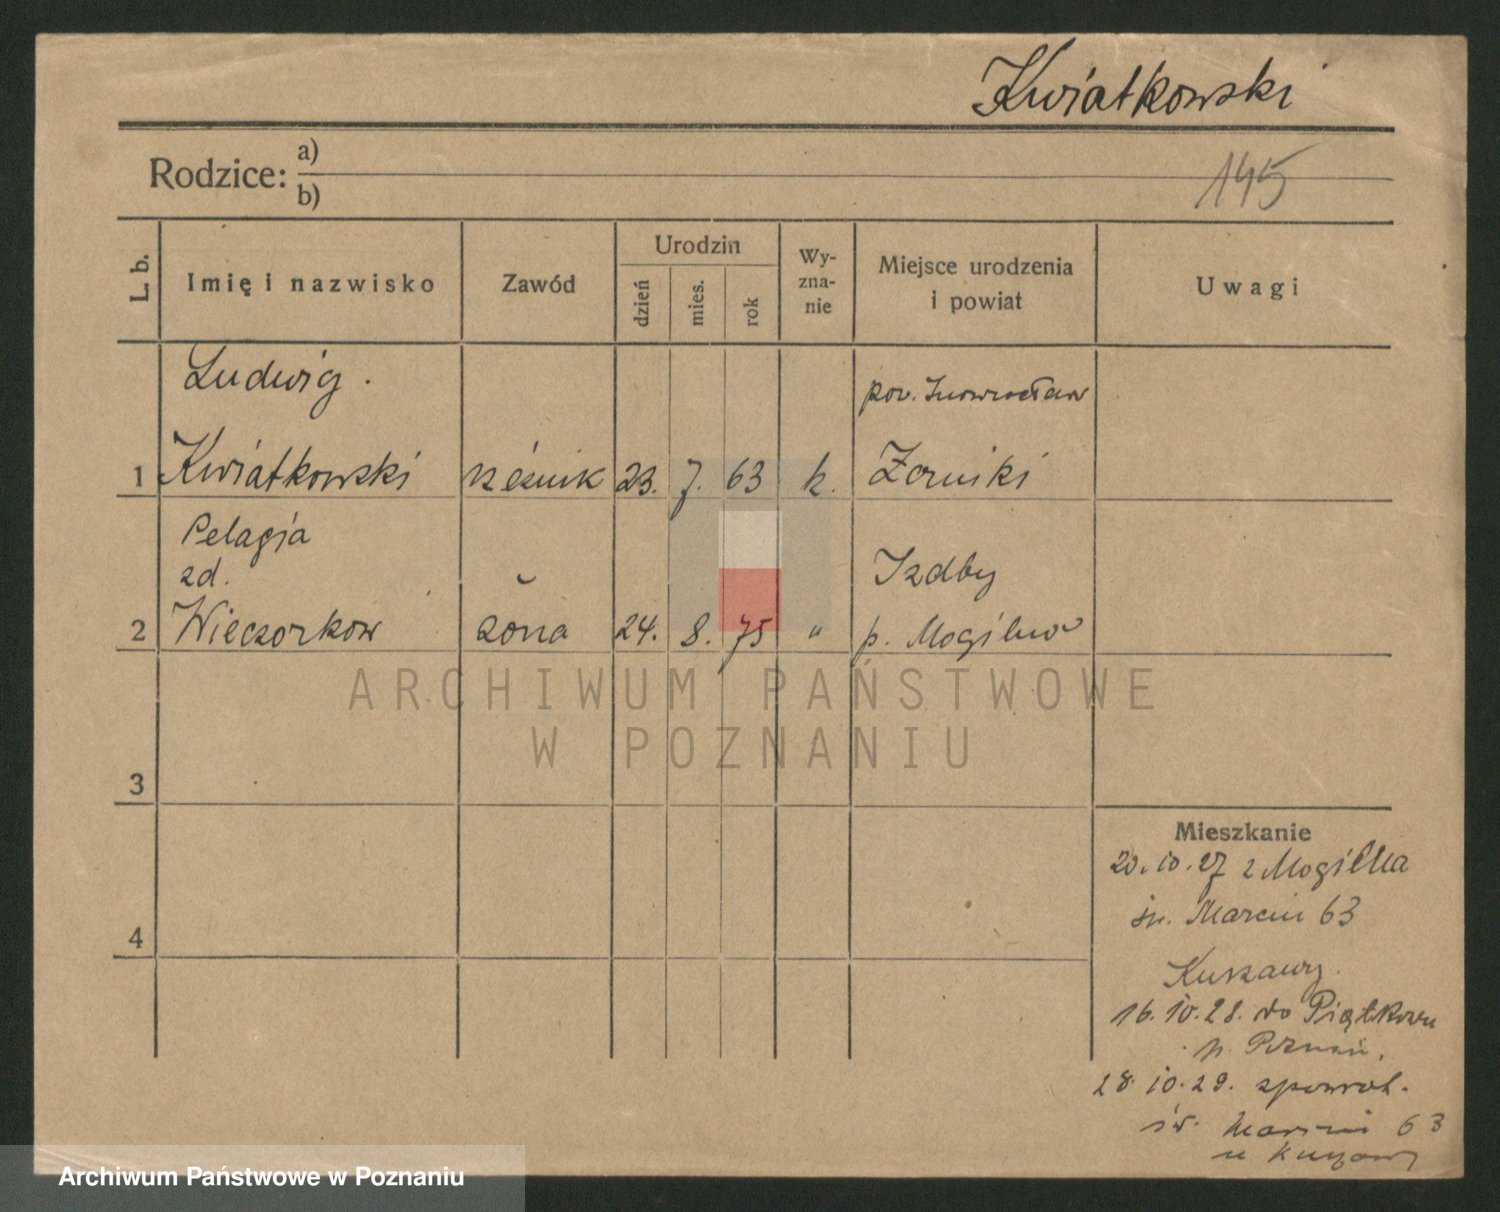 Kwiatkowski
Rodzice: a)
b)
145
L. b.
Imię i nazwisko
Zawód
Urodzin
dzień
mies.
rok
Wy-
zna-
nie
Miejsce urodzenia
i powiat
Uwagi
Ludwig.
pow. Inowrocław
1 Kwiatkowski rzeźnik 23. 7. 63 k. Żerniki
Pelagja
zd.
Izdby
2 Wieczorkow żona 24. 8. 75 " p. Mogilno
ARCHIWUM PAŃSTWOWE
W POZNANIU
3
Mieszkanie
20.10.27 z Mogilna
św. Marcin 63
4
16.10.28. do Piątkowa
p. Poznań.
28.10.29. zpowrot.
św. Marcin 63
u
Archiwum Państwowe w Poznaniu